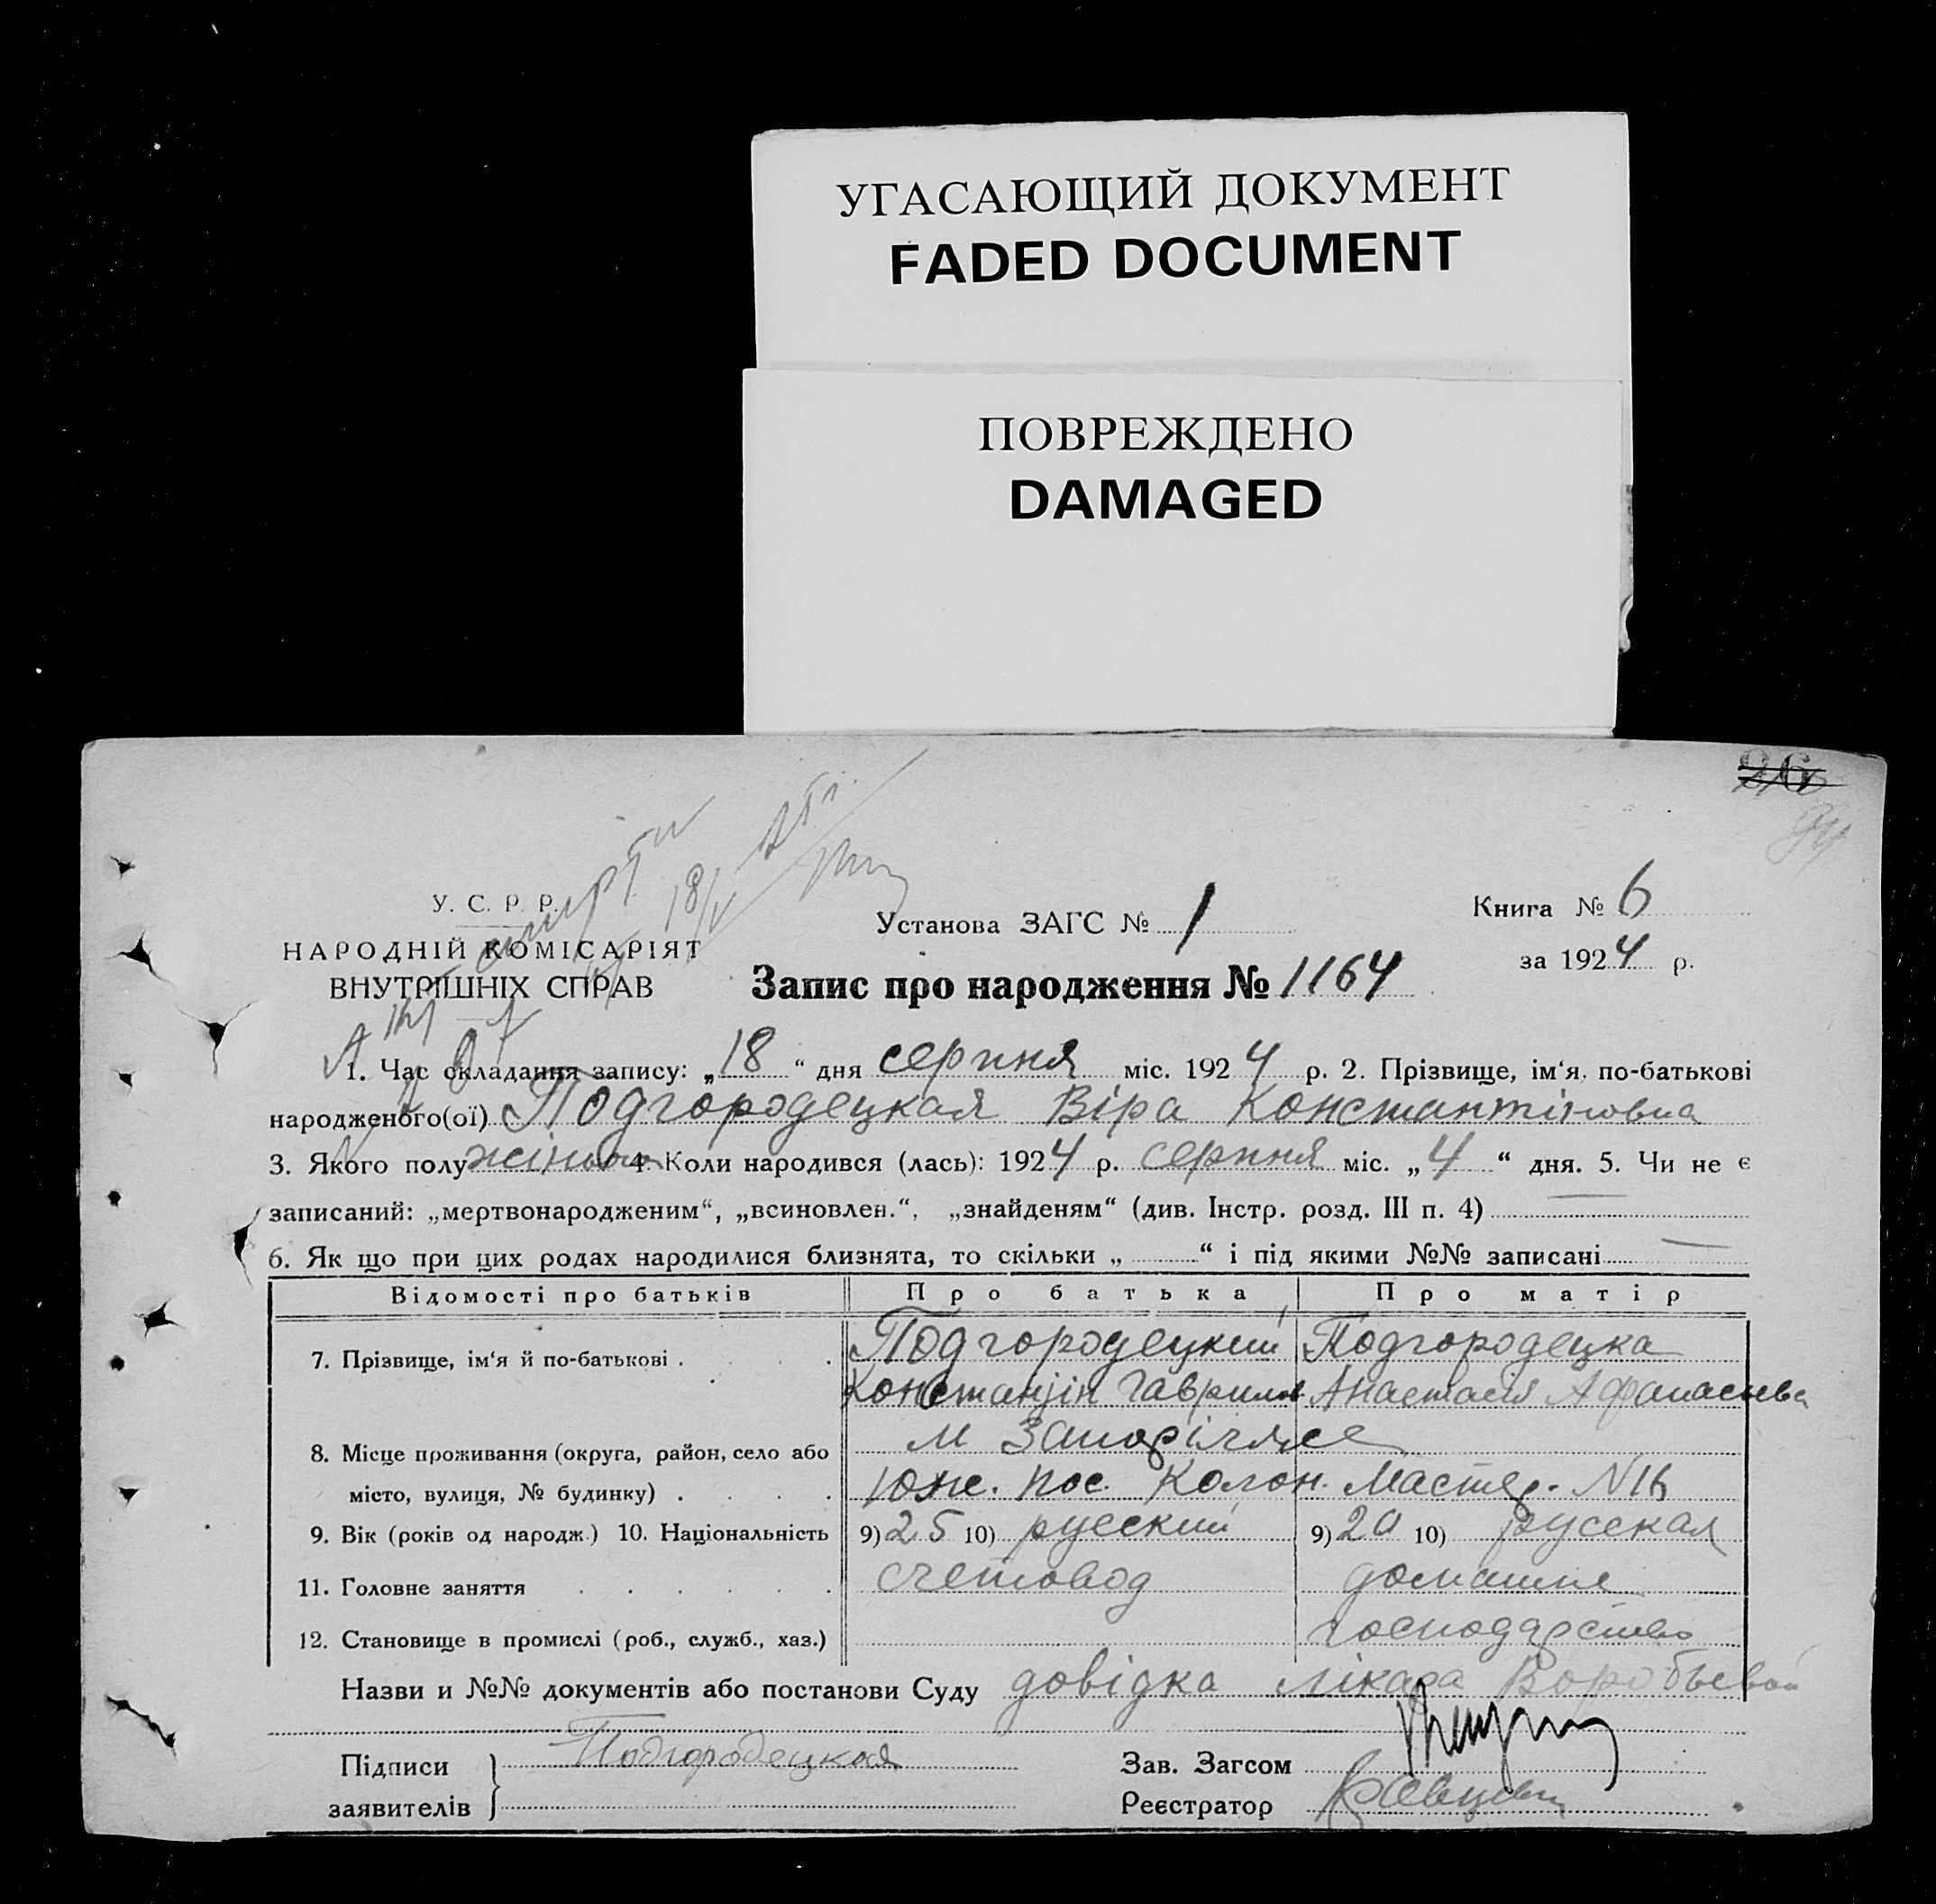 УГАСАЮЩИЙ ДОКУМЕНТ
FADED DOCUMENT
ПОВРЕЖДЕНО
DAMAGED
26
У. С. Р. Р.
НАРОДНІЙ КОМІСАРІЯТ
ВНУТРІШНІХ СПРАВ
Установа ЗАГС № 1
Книга № 6
за 1924 р.
Запис про народження № 1164
1. Час складання запису: „18“ дня серпня міс. 1924 р. 2. Прізвище, ім‘я, по-батькові
народженого(ої) Подгородецкая Віра Константіновна
3. Якого полу жіночого 4. Коли народився (лась): 1924 р. серпня міс. „4“ дня. 5. Чи не є
записаний: „мертвонародженим“, „всиновлен.“, „знайденям“ (див. Інстр. розд. III п. 4) —
6. Як що при цих родах народилися близнята, то скільки „ “ і під якими №№ записані —
Відомості про батьків Про батька Про матір
7. Прізвище, ім‘я й по-батькові . . . . Подгородецкий Подгородецка
Константін Гаврилов Анастасия Афанасиева
8. Місце проживання (округа, район, село або м Запоріжже
місто, вулиця, № будинку) . . . . Южн. пос. Колон. Мастер. N 16
9. Вік (років од народж.) 10. Національність 9) 25 10) русский 9) 20 10) русская
11. Головне заняття . . . . . . счетовод домашнє
12. Становище в промислі (роб., служб., хаз.) господарство
Назви и №№ документів або постанови Суду довідка лікара Воробьевой
Підписи Подгородецкая Зав. Загсом
заявителів Реєстратор